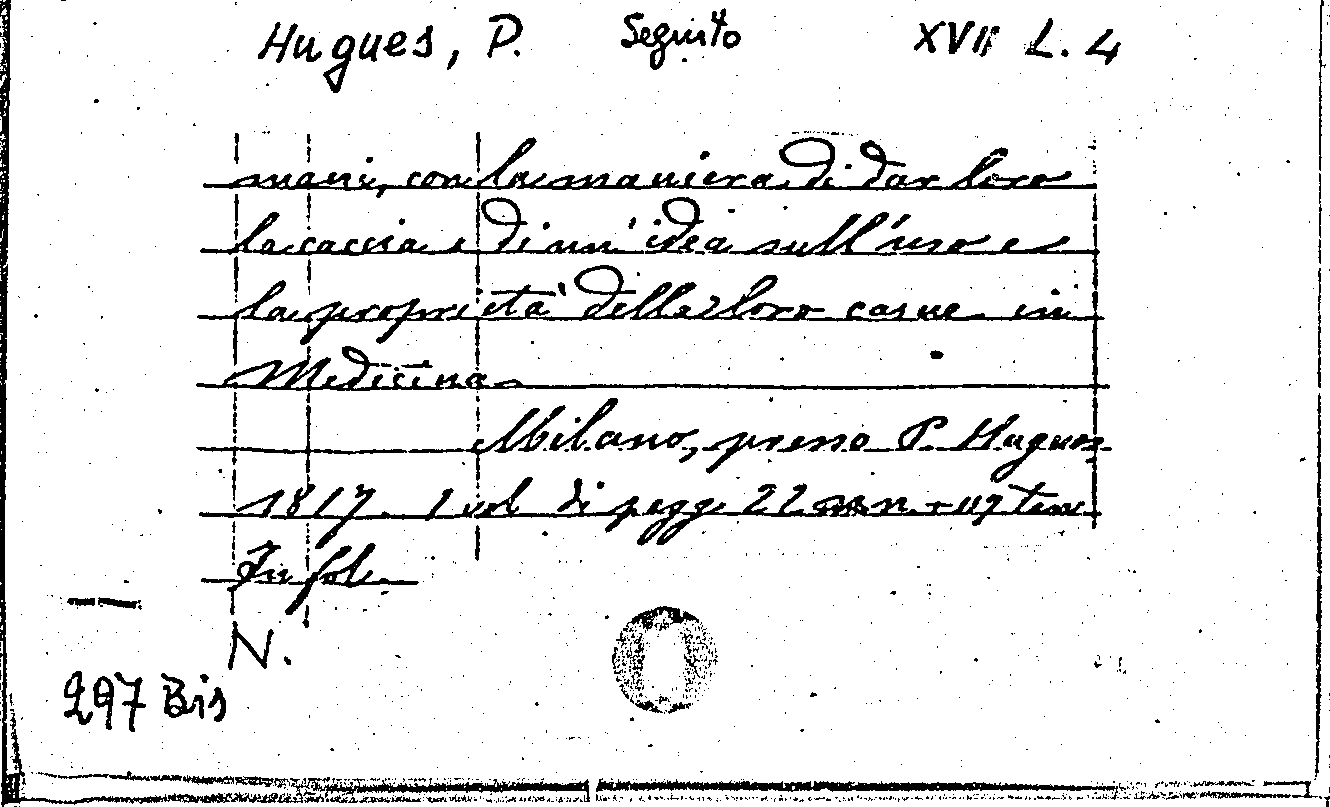 Hugues, P. Seguito XVII L. 4
mani, con la maniera di dar loro
la caccia e di un' idea sull'uso e
la proprietà delle loro carne in
Medicina
Milano, presso P. Hugues,
1817. 1 vol di pagg. 22 nn. +
In fol.
N.
297 Bis